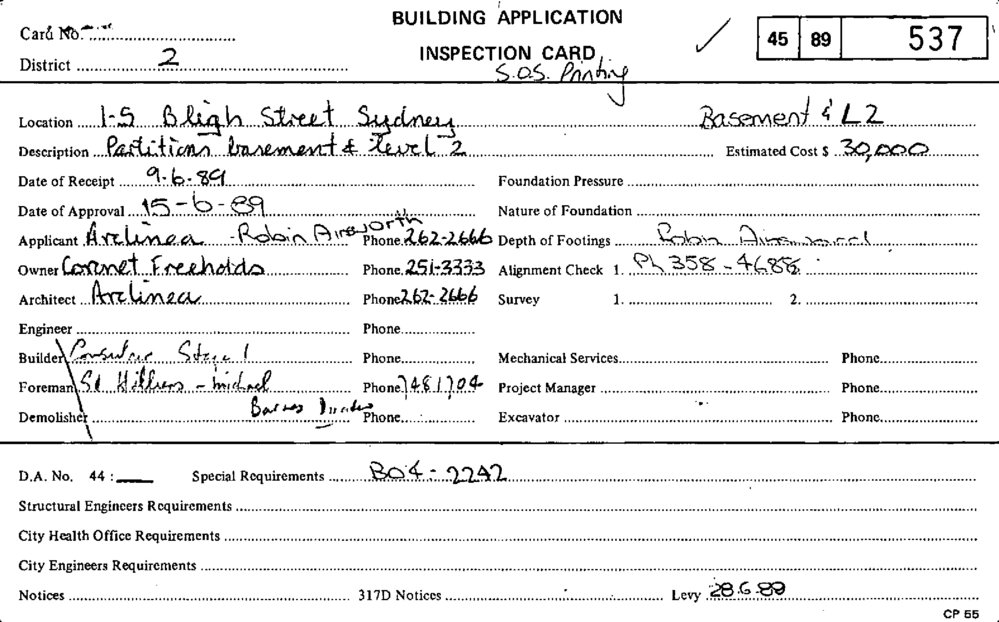 BUILDING APPLICATION
Card No.
45 89 537
INSPECTION CARD
District 2
S.O.S. Printing
Location 1-5 Bligh Street Sydney Basement & L2
Description Partitions basement & level 2 Estimated Cost $ 30,000
Date of Receipt 9.6.89 Foundation Pressure
Date of Approval 15-6-89 Nature of Foundation
Applicant Arclinea - Robin Phone 262-2666 Depth of Footings Robin
Owner Coronet Freeholds Phone 251-3333 Alignment Check 1. Ph 358-4688
Architect Arclinea Phone 262-2666 Survey 1. 2.
Engineer Phone
Builder Stage 1 Phone Mechanical Services Phone
Foreman St Hilliers - michael Phone 7481704 Project Manager Phone
Demolisher Phone Excavator Phone
D.A. No. 44 : Special Requirements BO4-2242
Structural Engineers Requirements
City Health Office Requirements
City Engineers Requirements
Notices 317D Notices Levy 28.6.89
CP 55